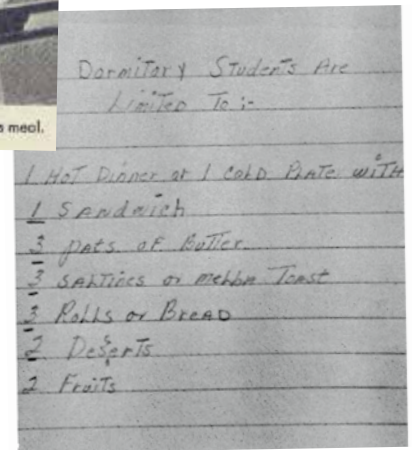 a meal.
Dormitory Students Are
Limited To :-
1 HOT Dinner or 1 COLD PLATE WITH
1 SANDwich
3 pATs oF BuTTer
3 SALTines or melba Toast
3 Rolls or BreAD
2 Deserts
2 Fruits